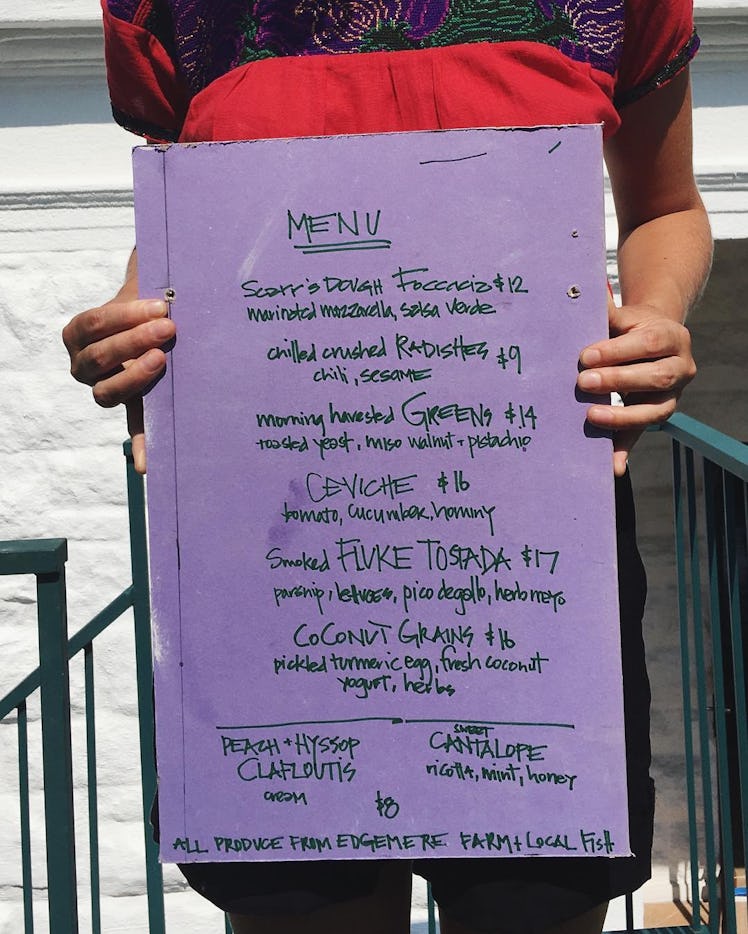 MENU
Scarr's DOUGH Foccacia $12
marinated mozzarella, salsa verde
chilled crushed RADISHES $9
chili, sesame
morning harvested GREENS $14
toasted yeast, miso walnut + pistachio
CEVICHE $16
tomato, cucumber, hominy
Smoked FLUKE TOSTADA $17
parsnip, lettuces, pico de gallo, herb mayo
COCONUT GRAINS $16
pickled turmeric egg, fresh coconut
yogurt, herbs
PEACH + HYSSOP
CLAFLOUTIS
cream
SWEET
CANTALOPE
ricotta, mint, honey
$8
ALL PRODUCE FROM EDGEMERE FARM + LOCAL FISH